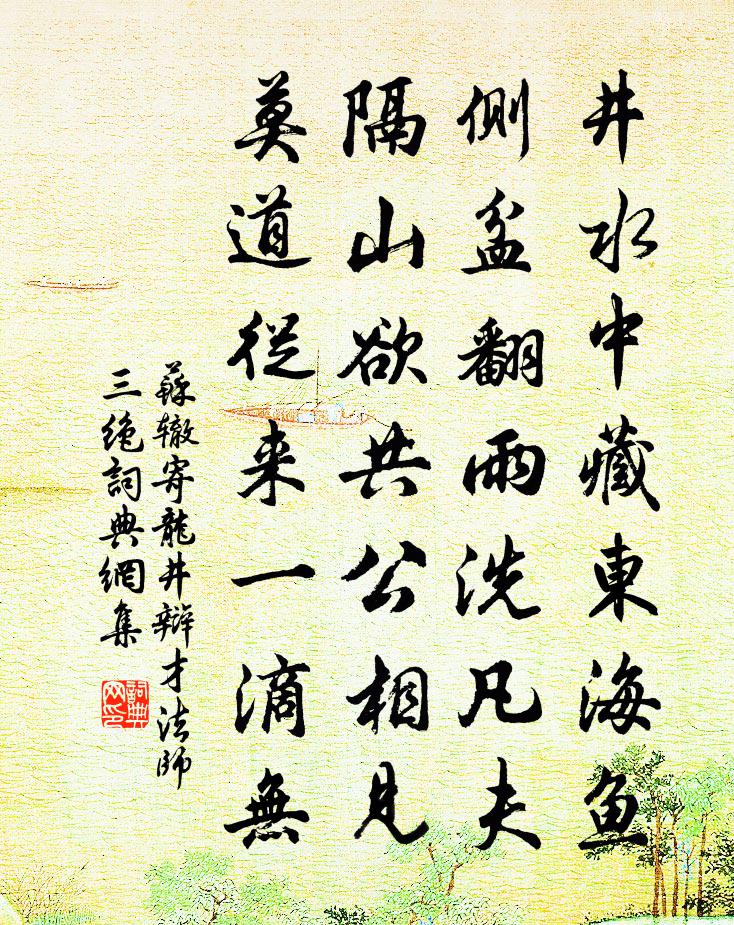 井水中藏東海魚
側盆翻雨洗凡夫
隔山欲共公相見
莫道從来一滴無
蘇辙寄龍井辯才法師
三绝詞典網集
詞典
网印